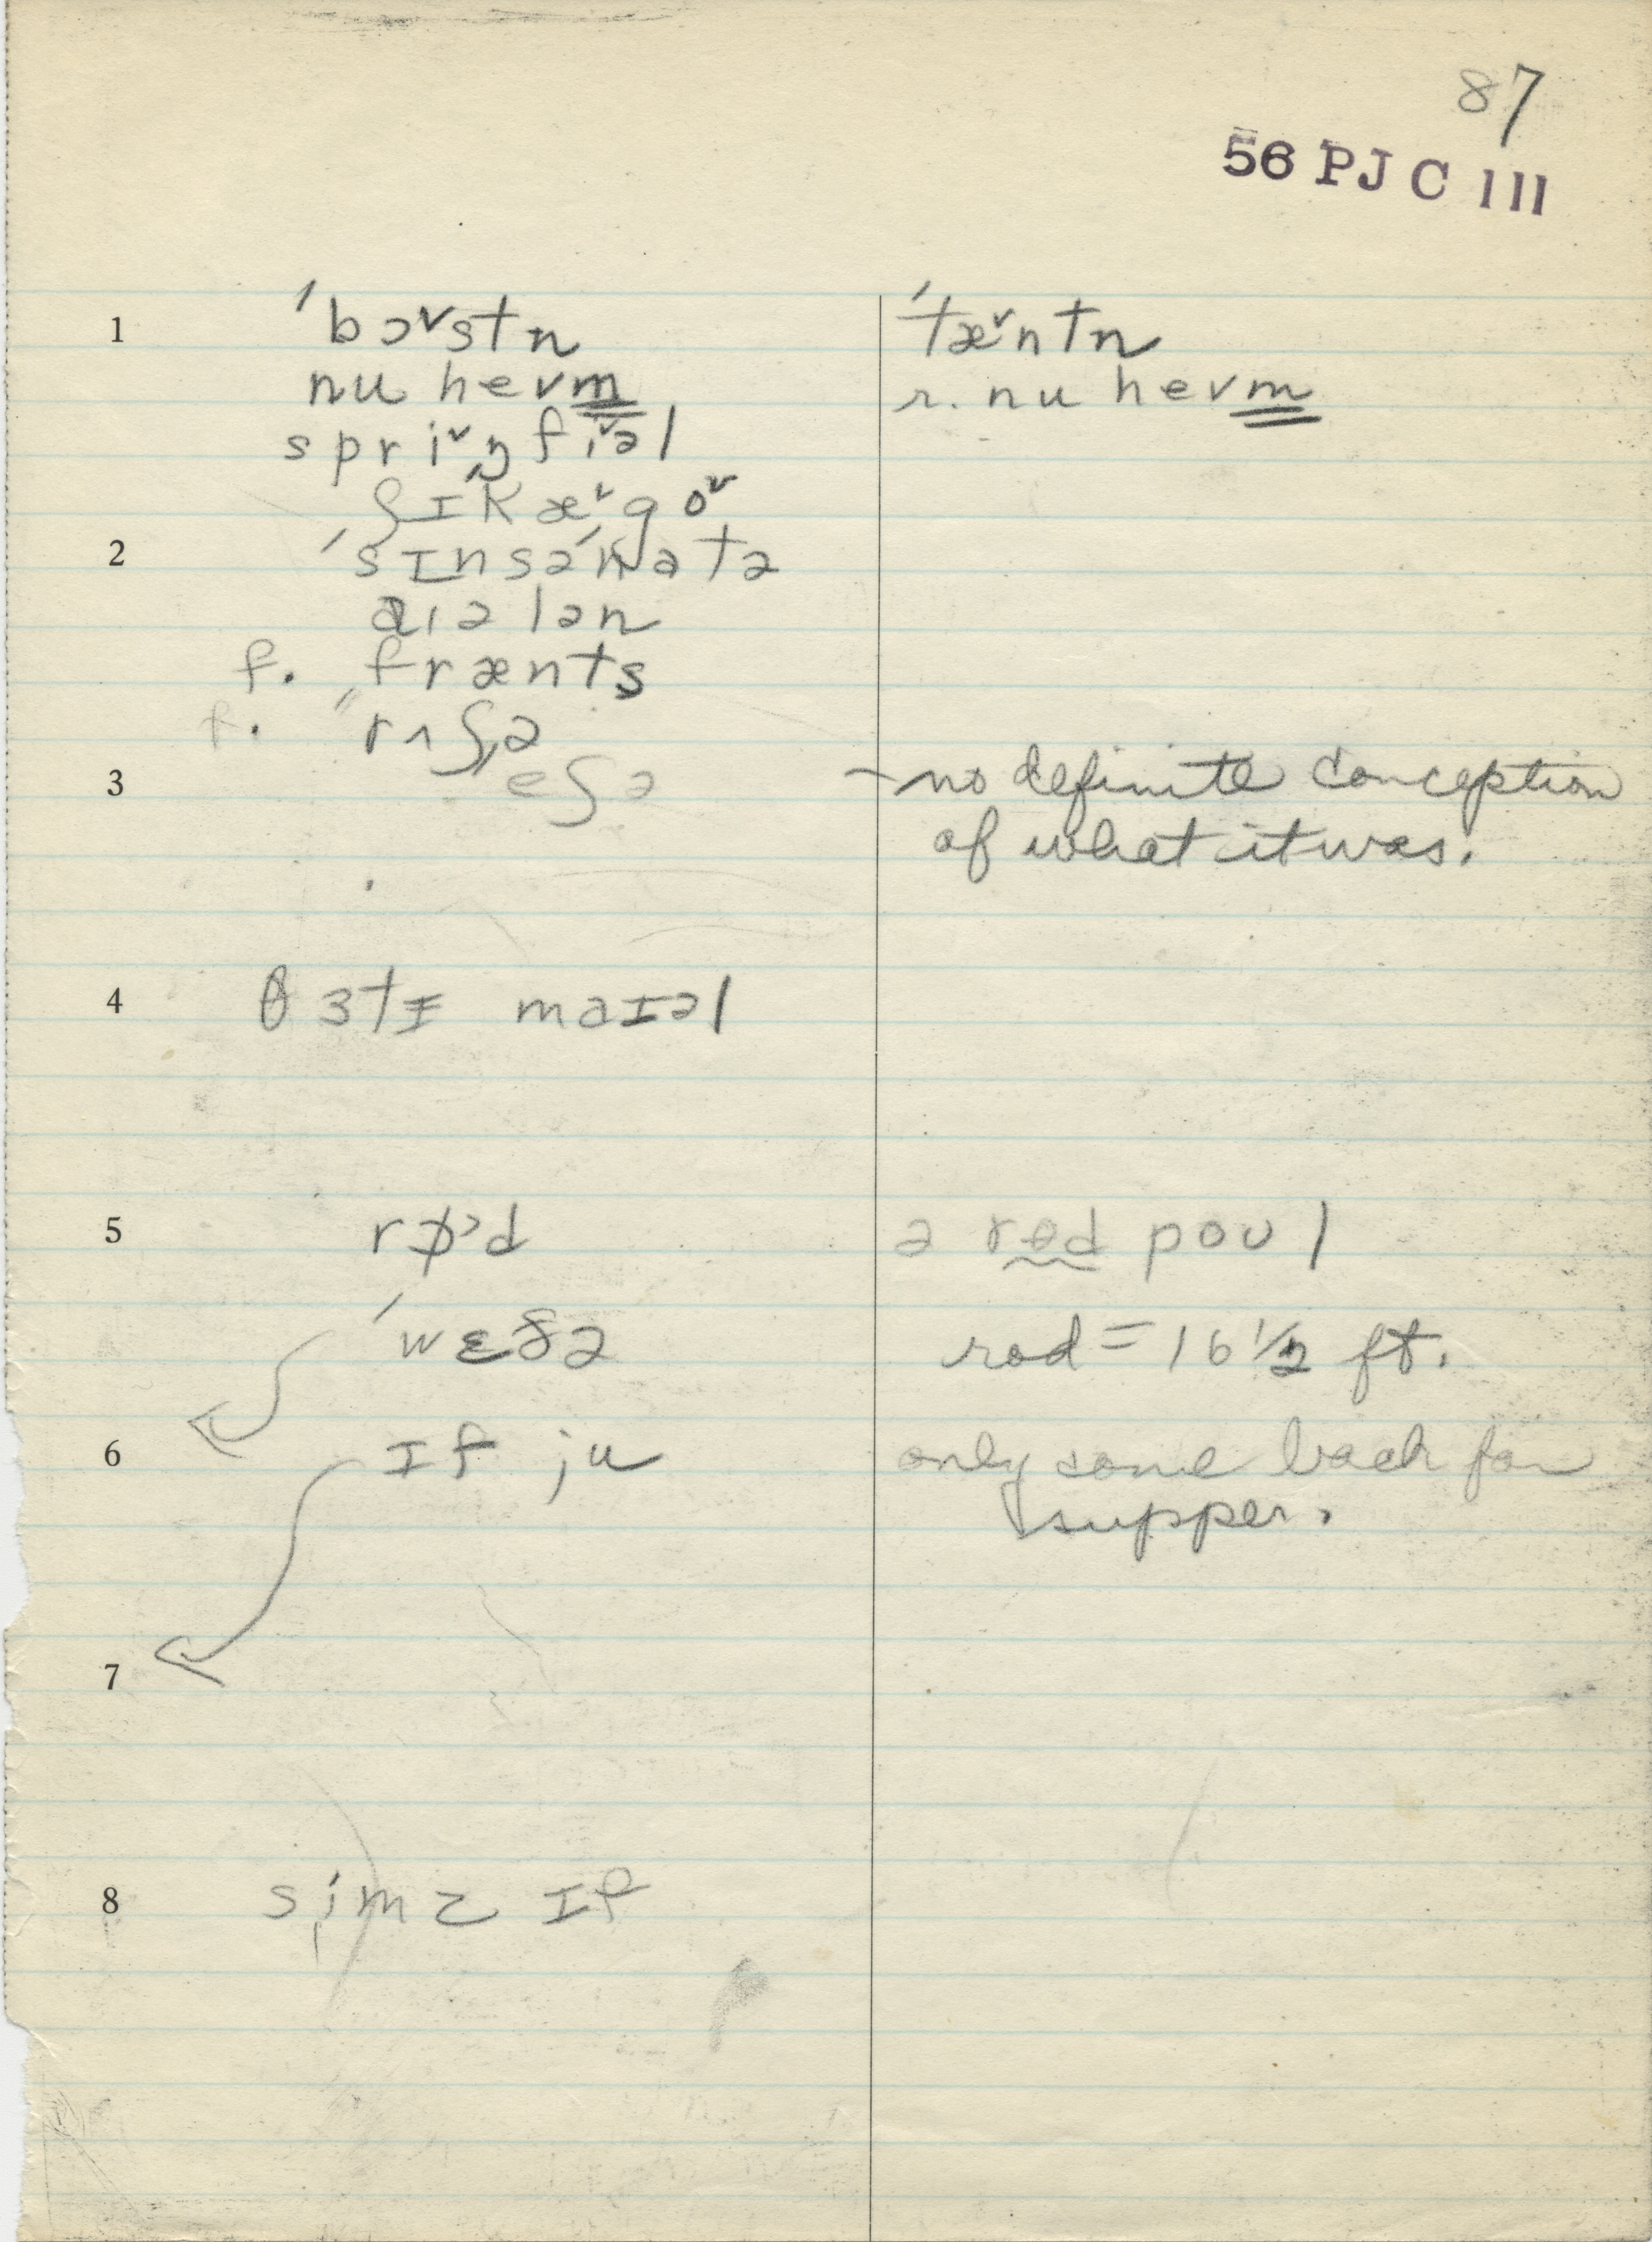 87
56 PJ C 111
1 ˈbɔ˅stn̩ ˈtæ˅ntn̩
nu hevm̳ r. nu hevm̳
spri˅ŋfi˅əl
ʃɪkæ˅go˅
2 ˈsɪnsəˈnatə
aɪələn
f. frænts
f. ˈˈrʌʃə
3 eʃə - no definite conception
of what it was.
4 θɜtɪ maɪəl
5 ə rɵd poʊl
ˈwɛðə rod = 16 1/2 ft.
6 ɪf ju only come back for
supper.
7
8 simz ɪf